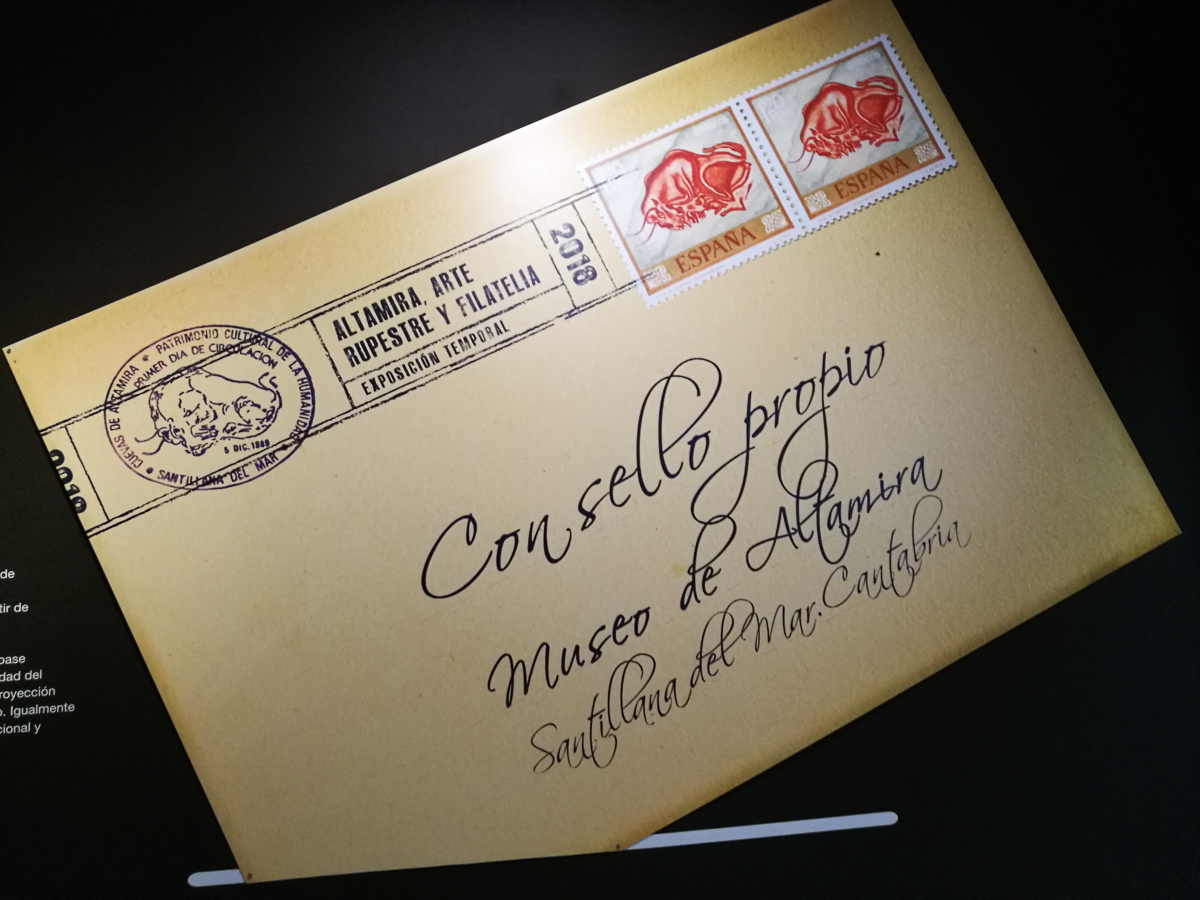 ESPAÑA
ESPAÑA
2018
ALTAMIRA, ARTE
RUPESTRE Y FILATELIA
EXPOSICIÓN TEMPORAL
CUEVAS DE ALTAMIRA * PATRIMONIO CULTURAL DE LA HUMANIDAD
PRIMER DIA DE CIRCULACION
5 DIC. 1989
SANTILLANA DEL MAR
2018
Con sello propio
Museo de Altamira
Santillana del Mar. Cantabria
de
tir de
base
dad del
royección
o. Igualmente
cional y